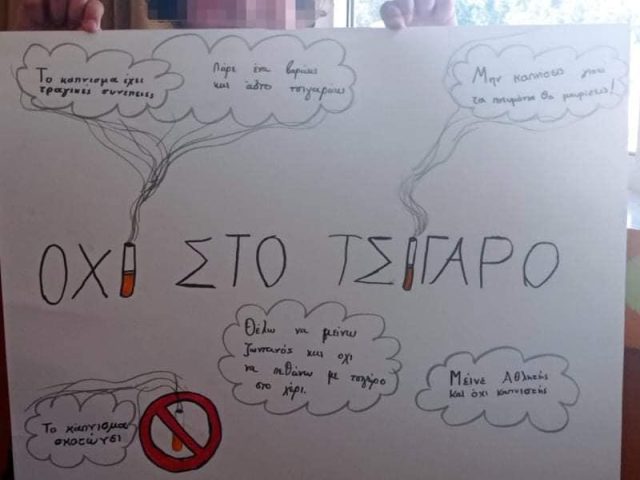 Το κάπνισμα έχει
τραγικές συνέπειες
Πάρε ένα
και άστο τσιγαράκι
Μην καπνίσεις γιατί
τα πνευμόνια θα μαυρίσεις!
ΟΧΙ ΣΤΟ ΤΣΙΓΑΡΟ
Θέλω να μείνω
ζωντανός και όχι
να πεθάνω με τσιγάρο
στο χέρι.
Μείνε Αθλητής
και όχι καπνιστής
Το κάπνισμα
σκοτώνει